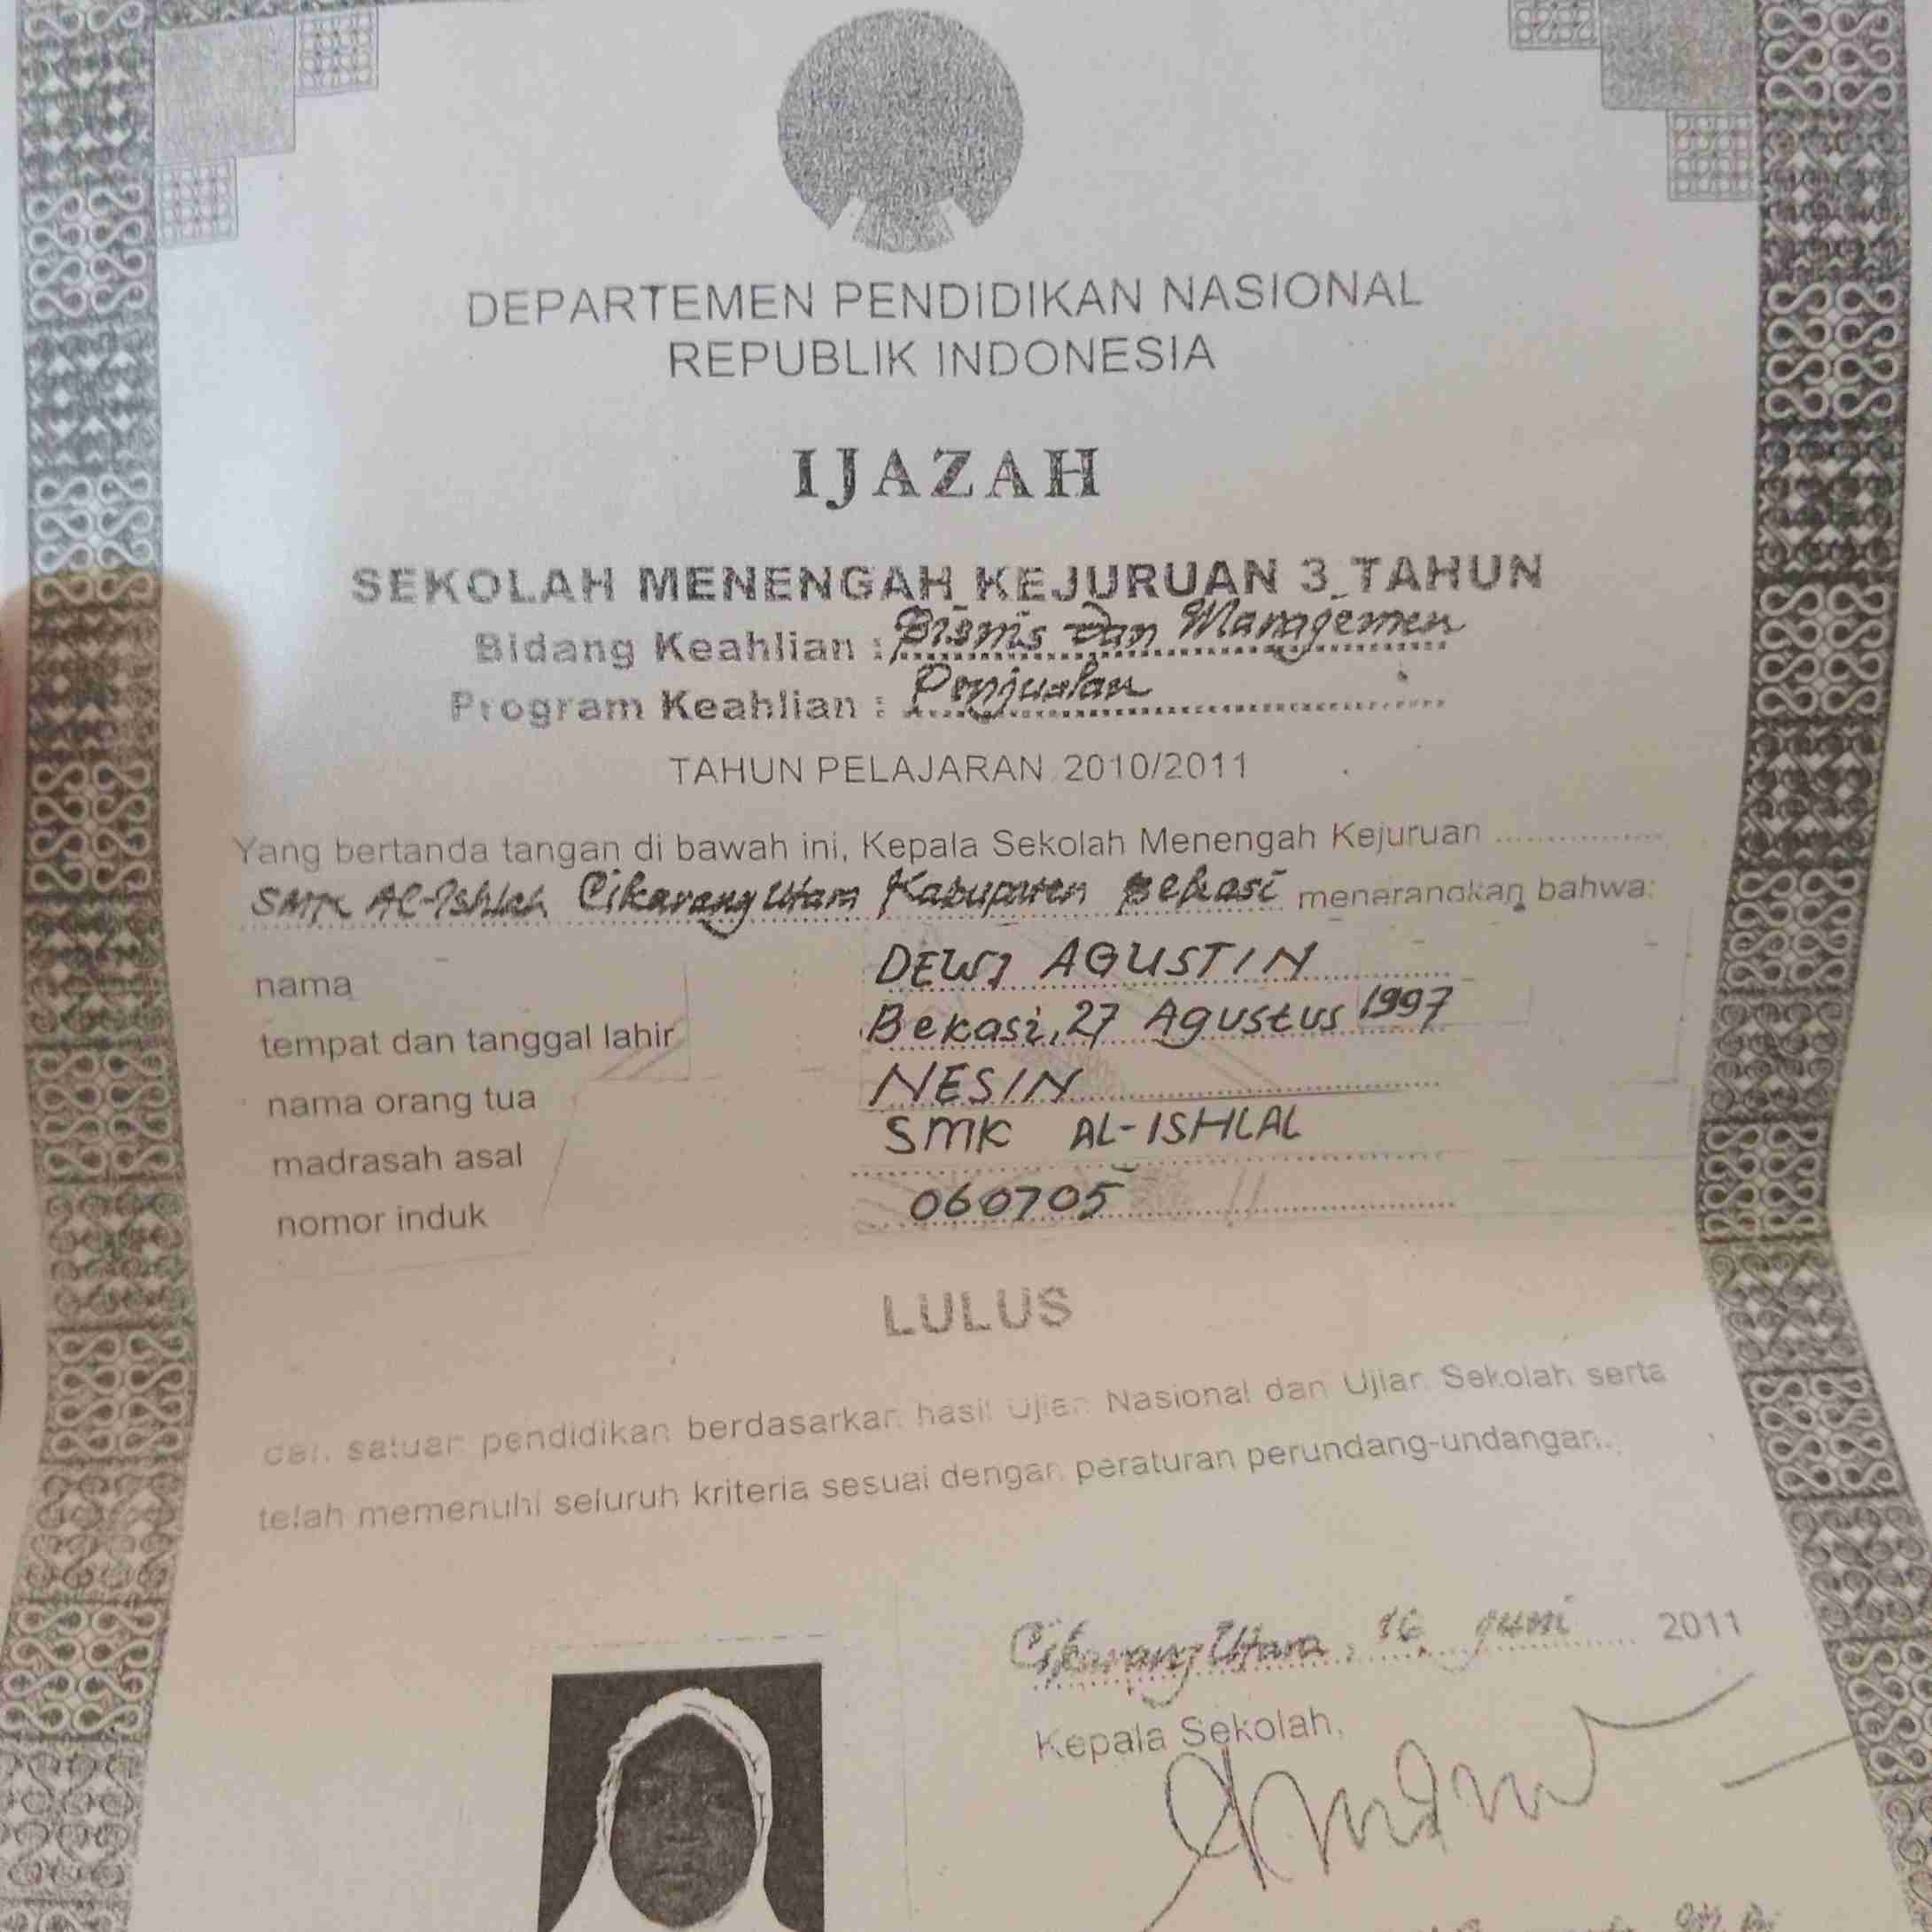 DEPARTEMEN PENDIDIKAN NASIONAL
REPUBLIK INDONESIA
IJAZAH
SEKOLAH MENENGAH KEJURUAN 3 TAHUN
Bidang Keahlian : Bisnis dan Managemen
Program Keahlian : Penjualan
TAHUN PELAJARAN 2010/2011
Yang bertanda tangan di bawah ini, Kepala Sekolah Menengah Kejuruan ................
SMK Al-Ishlah Cikarang Utara Kabupaten Bekasi menerangkan bahwa:
nama DEWI AGUSTIN
tempat dan tanggal lahir Bekasi, 27 Agustus 1997
nama orang tua NESIN
madrasah asal SMK AL-ISHLAL
nomor induk 060705
LULUS
dari satuan pendidikan berdasarkan hasil Ujian Nasional dan Ujian Sekolah serta
telah memenuhi seluruh kriteria sesuai dengan peraturan perundang-undangan.
Cikarang Utara, 16 Juni 2011
Kepala Sekolah,